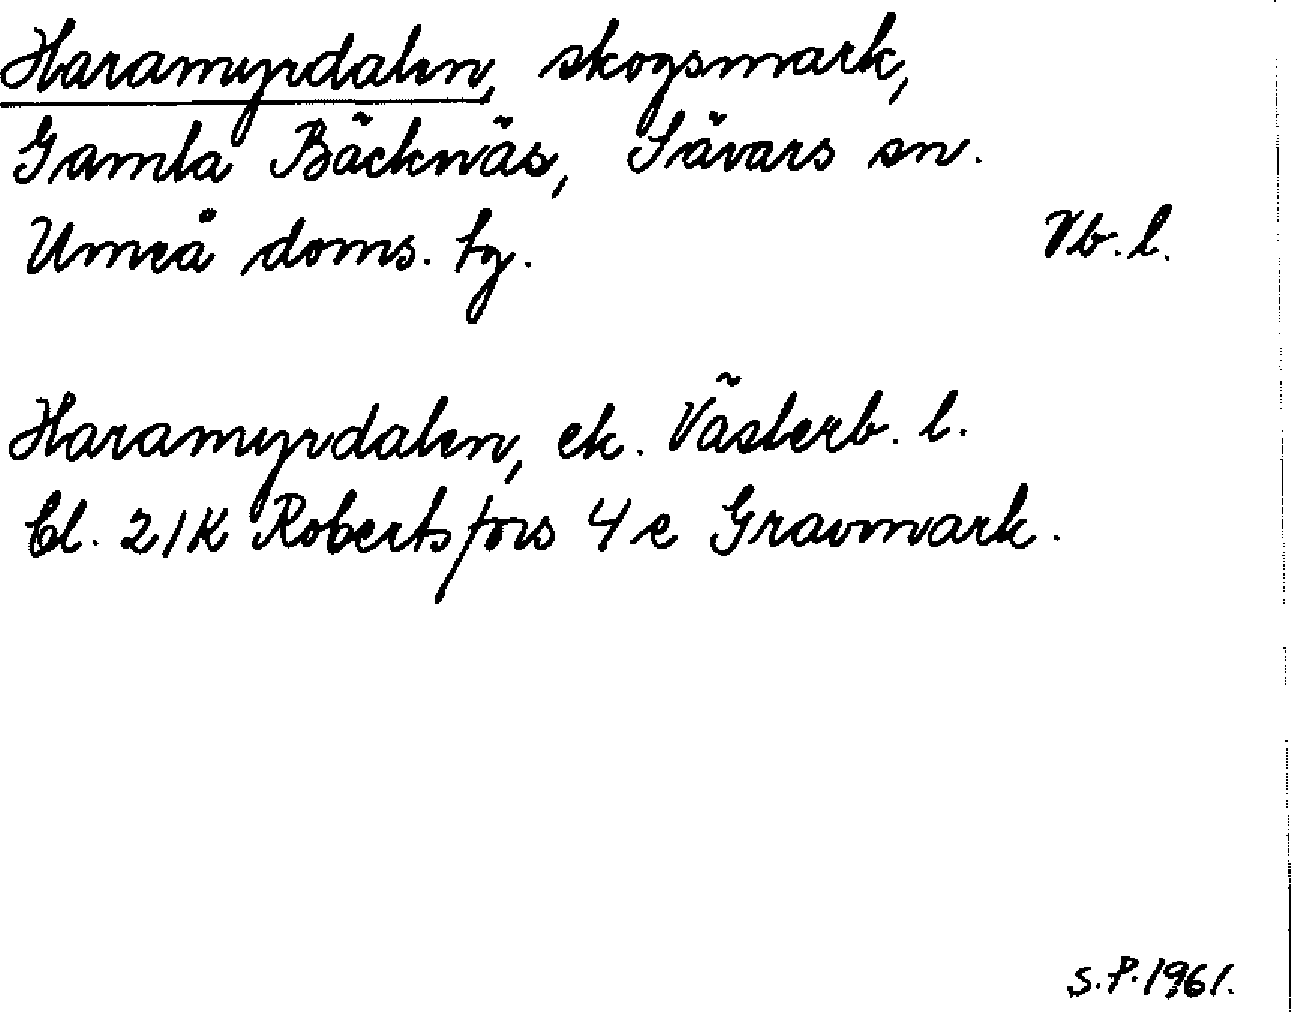 Haramyrdalen, skogsmark,
Gamla Bäcknäs, Sävars sn.
Umeå doms. tg. Vb. l.
Haramyrdalen, ek. Västerb. l.
bl. 21K Robertsfors 4 e Gravmark.
S.P. 1961.